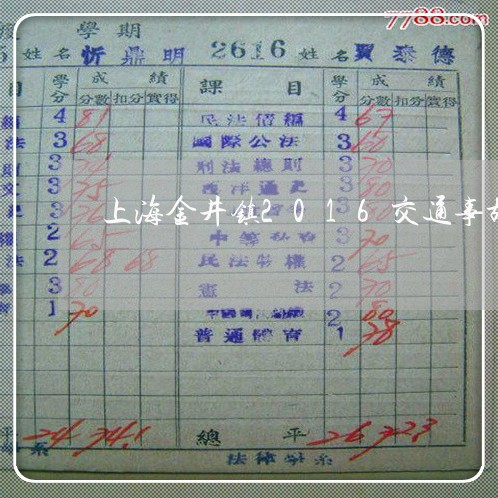 7788.com
學期
姓名忻鼎明 2616 姓名賈泰德
目 學分 成績 課目 學分 成績
分數 扣分 實得 分數 扣分 實得
4 81 民法債編 4 67
法 3 68 國際公法 3 60
3 刑法總則 3 70
3 75 西洋通史 3 80
上海金井鎮2016交通事故
2 65 3 70
法 2 68 68 民法物權 2 65
3 80 憲法 2 70
1 70 2 80
普通體育 1 78
平 24 74.1 總平 26 72.3
系 法律學系